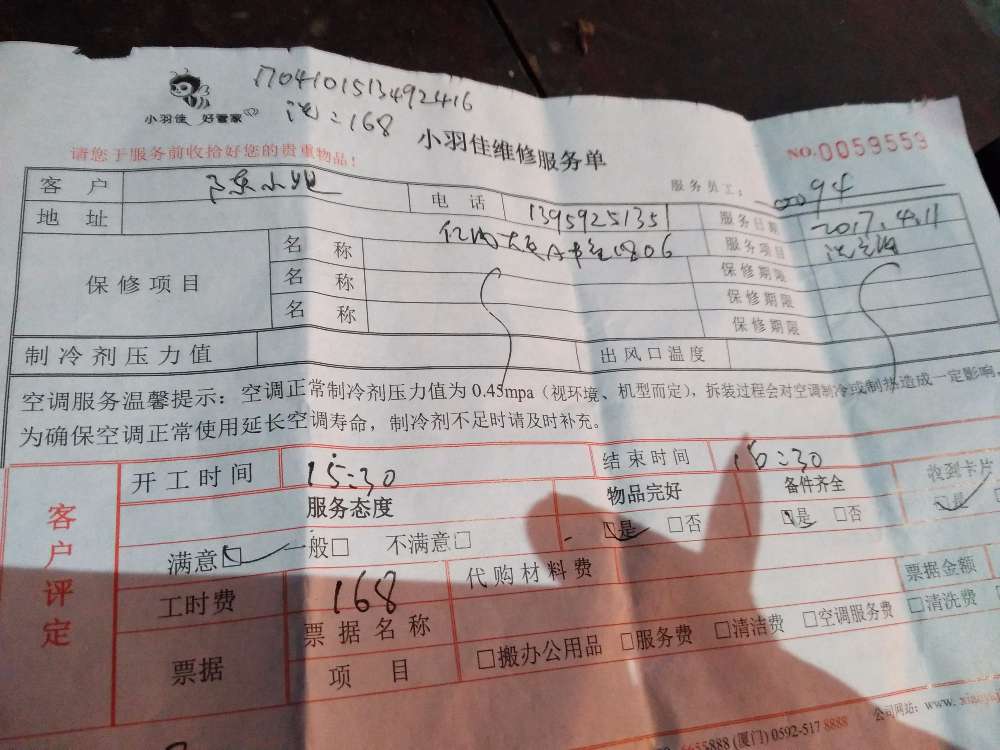 170410151349 2416
洗:168
小羽佳 好管家
小羽佳维修服务单
NO.0059559
请您于服务前收拾好您的贵重物品!
服务员工: 0094
客 户 电 话 13959251351 服务日期 2017.4.11
地 址 服务项目
保修项目 名 称 保修期限
名 称 保修期限
名 称 保修期限
制冷剂压力值 出风口温度
空调服务温馨提示:空调正常制冷剂压力值为 0.45mpa(视环境、机型而定),拆装过程会对空调制冷或制热造成一定影响,
为确保空调正常使用延长空调寿命,制冷剂不足时请及时补充。
客户评定
开工时间 15:30 结束时间 16:30
服务态度 物品完好 备件齐全 收到卡片
满意□ 一般□ 不满意□ □是 □否 □是 □否 □是
工时费 168 代购材料费 票据金额
票据 票据名称 □搬办公用品 □服务费 □清洁费 □空调服务费 □清洗费
项 目
5655888 (厦门) 0592-517 8888 公司网站: www. xiaoyu